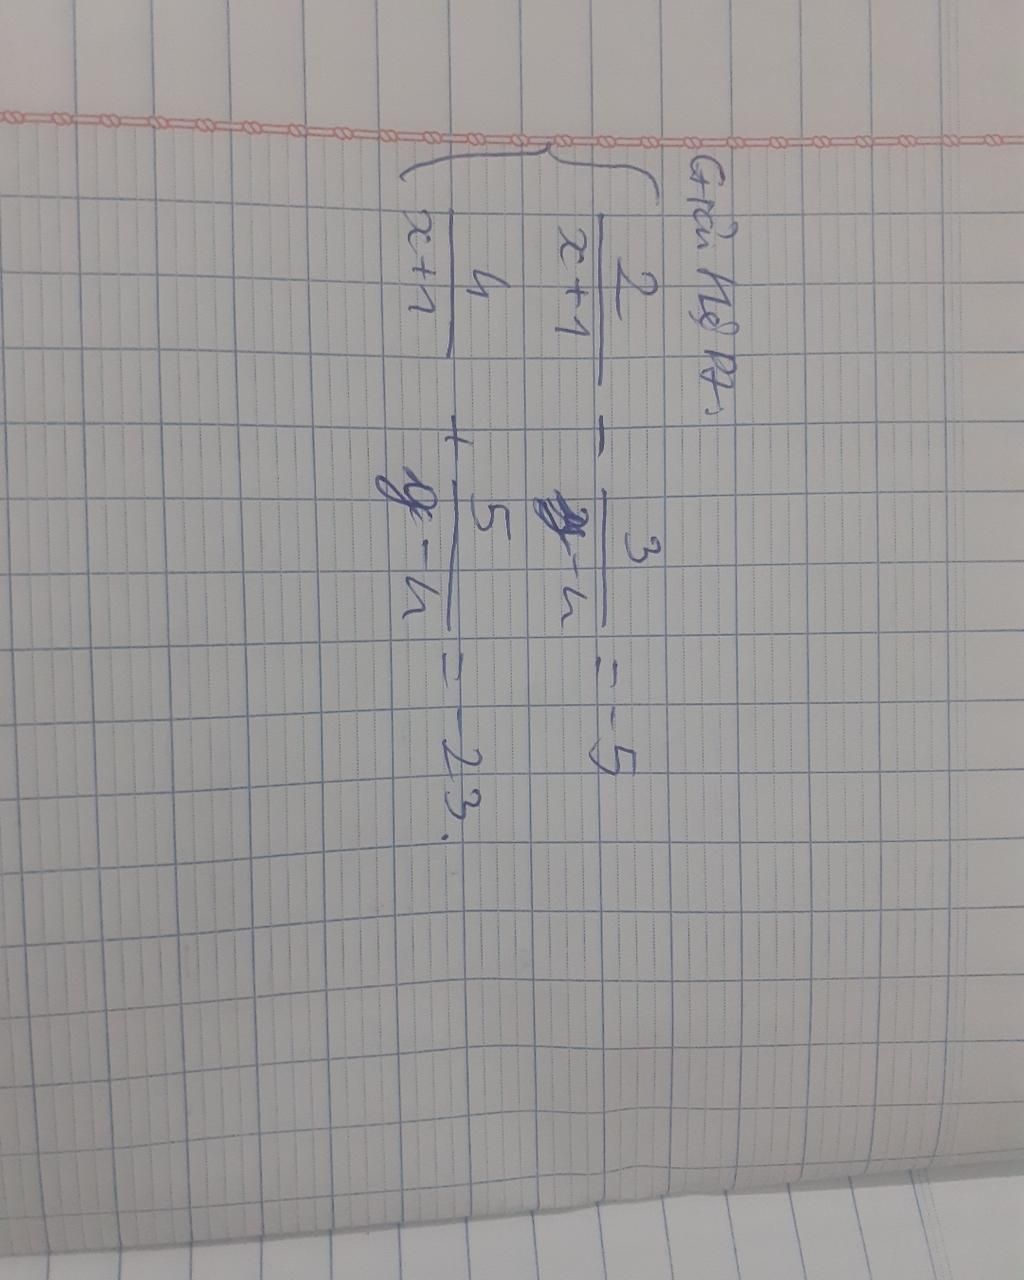 Giải hệ PT:
2/(x+1) - 3/(y-4) = -5
4/(x+1) + 5/(y-4) = -23.